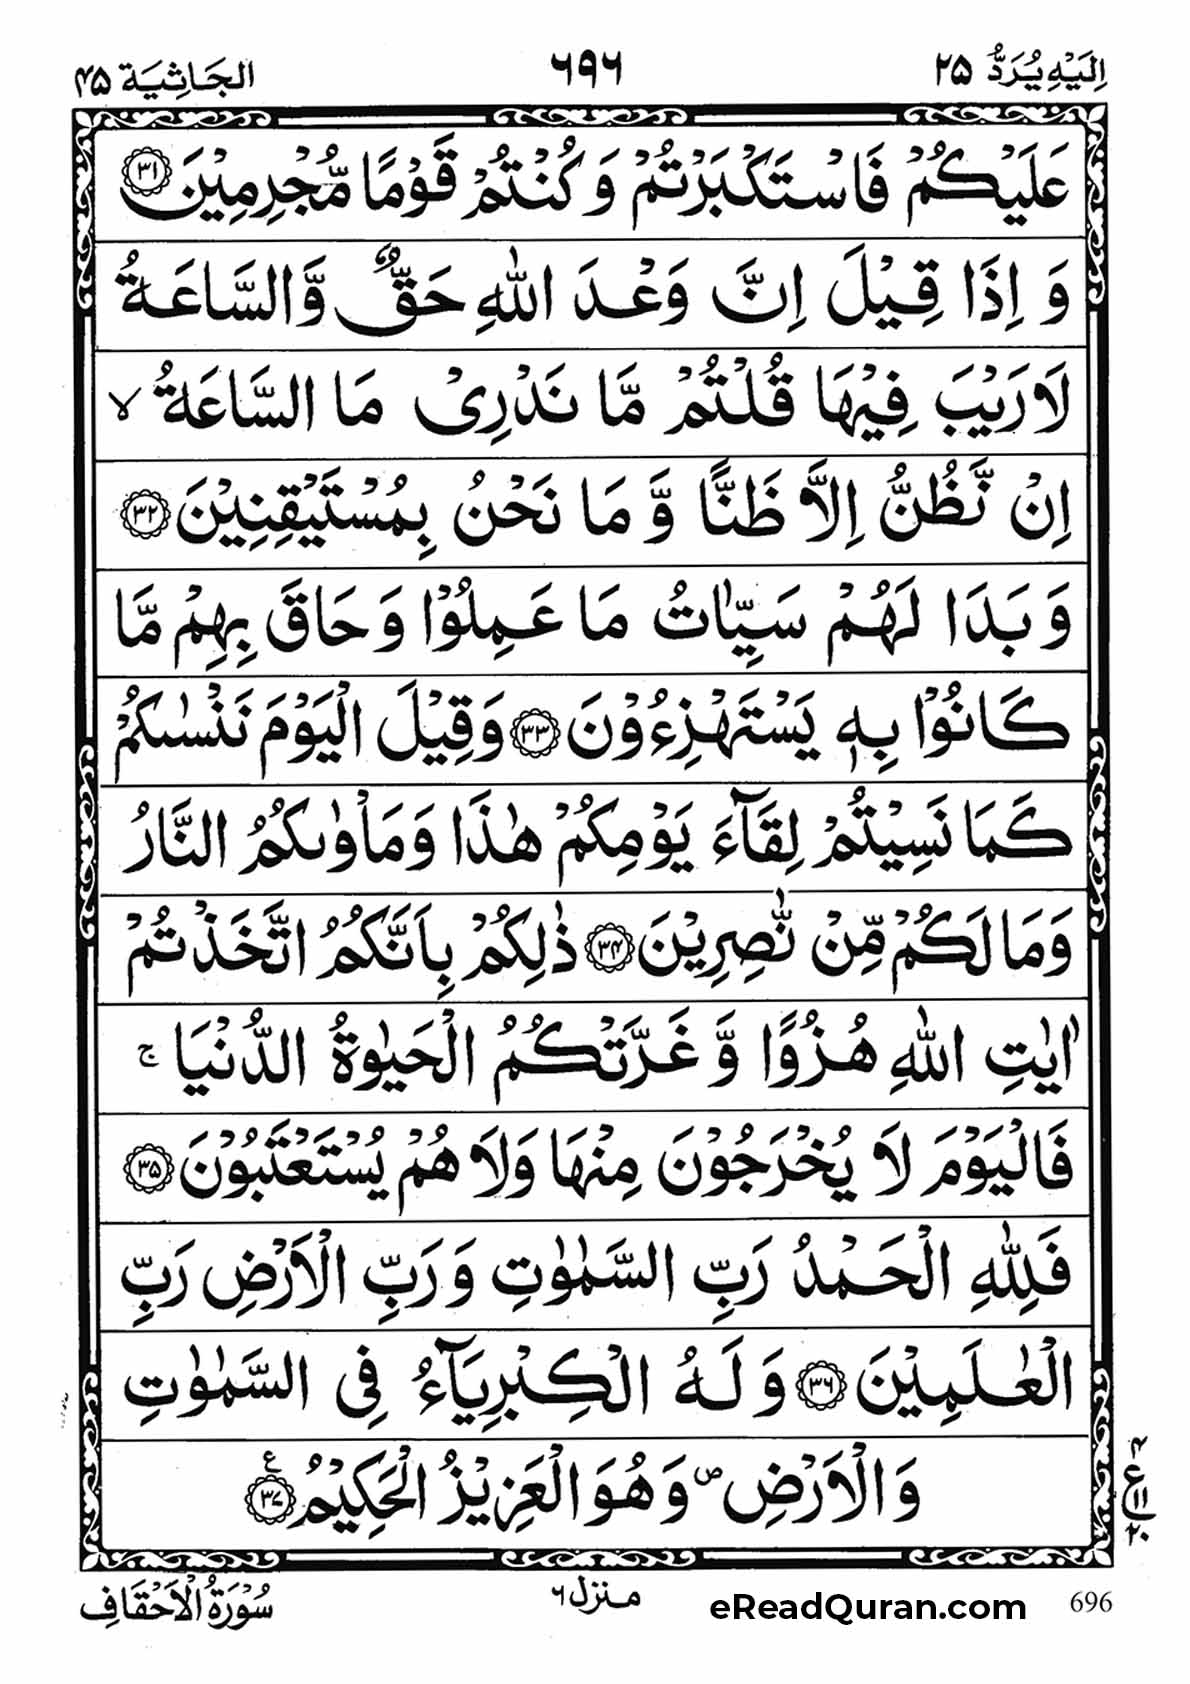 اِلَيْهِ يُرَدُّ ٢٥ ٦٩٦ الجَاثِيَة ٤٥
عَلَيْكُمْ فَاسْتَكْبَرْتُمْ وَكُنْتُمْ قَوْمًا مُّجْرِمِيْنَ ٣١
وَ اِذَا قِيْلَ اِنَّ وَعْدَ اللّٰهِ حَقٌّ وَّالسَّاعَةُ
لَا رَيْبَ فِيْهَا قُلْتُمْ مَّا نَدْرِىْ مَا السَّاعَةُ ۙ
اِنْ نَّظُنُّ اِلَّا ظَنًّا وَّ مَا نَحْنُ بِمُسْتَيْقِنِيْنَ ٣٢
وَ بَدَا لَهُمْ سَيِّاٰتُ مَا عَمِلُوْا وَ حَاقَ بِهِمْ مَّا
كَانُوْا بِهٖ يَسْتَهْزِءُوْنَ ٣٣ وَقِيْلَ الْيَوْمَ نَنْسٰىكُمْ
كَمَا نَسِيْتُمْ لِقَآءَ يَوْمِكُمْ هٰذَا وَمَاْوٰىكُمُ النَّارُ
وَمَا لَكُمْ مِّنْ نّٰصِرِيْنَ ٣٤ ذٰلِكُمْ بِاَنَّكُمُ اتَّخَذْتُمْ
اٰيٰتِ اللّٰهِ هُزُوًا وَّ غَرَّتْكُمُ الْحَيٰوةُ الدُّنْيَا ۚ
فَالْيَوْمَ لَا يُخْرَجُوْنَ مِنْهَا وَلَا هُمْ يُسْتَعْتَبُوْنَ ٣٥
فَلِلّٰهِ الْحَمْدُ رَبِّ السَّمٰوٰتِ وَ رَبِّ الْاَرْضِ رَبِّ
الْعٰلَمِيْنَ ٣٦ وَ لَهُ الْكِبْرِيَآءُ فِى السَّمٰوٰتِ
وَ الْاَرْضِ ۖ وَ هُوَ الْعَزِيْزُ الْحَكِيْمُ ٣٧ ع
٤ ع ١١ ٢٠
696 eReadQuran.com منزل ٦ سُوْرَةُ الْاَحْقَافِ